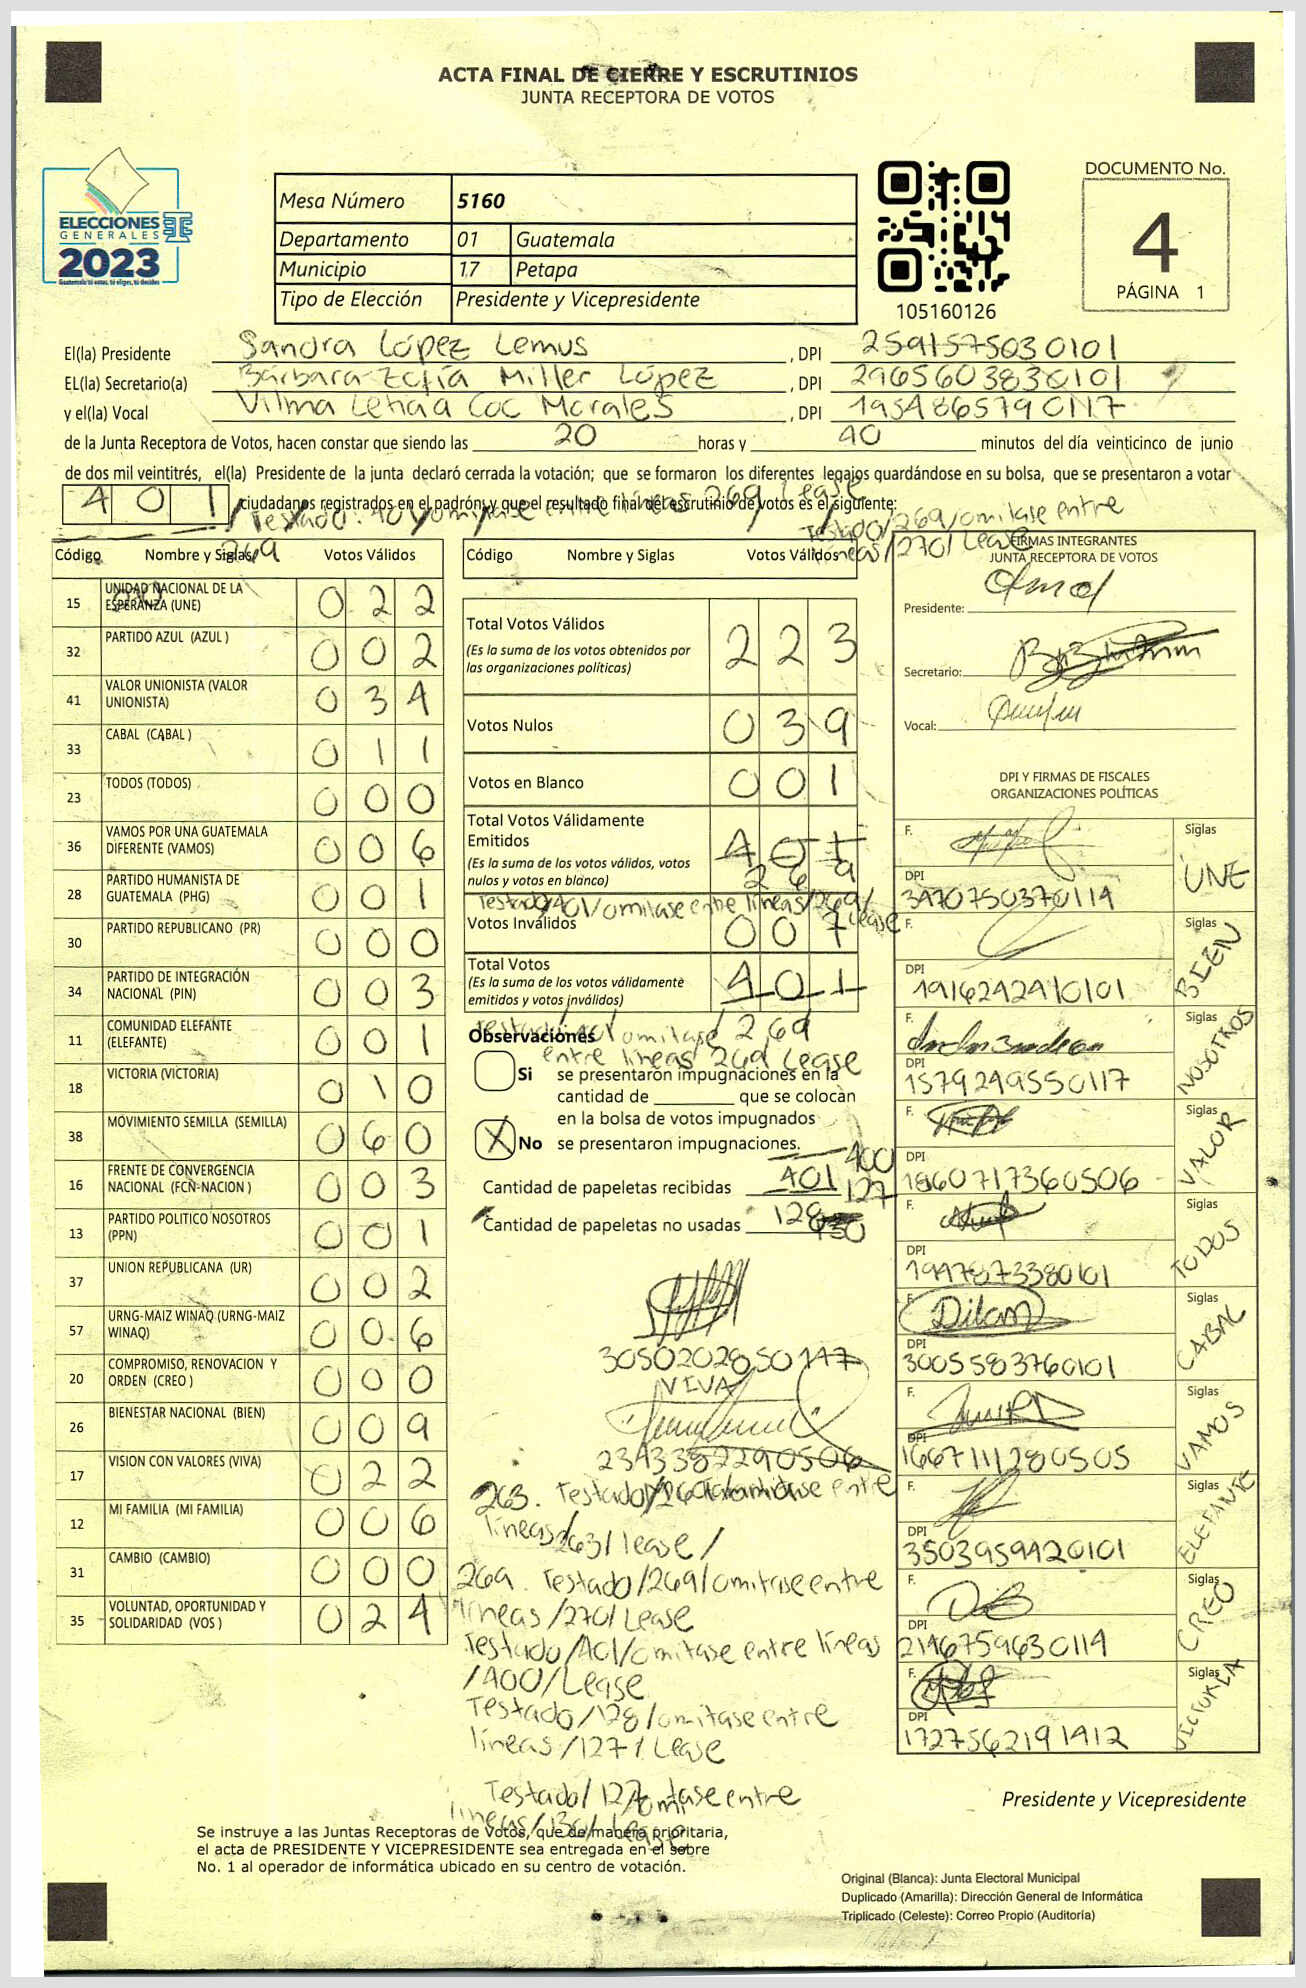 ACTA FINAL DE CIERRE Y ESCRUTINIOS
JUNTA RECEPTORA DE VOTOS
ELECCIONES
GENERALES
2023
Guatemala tú votas, tú eliges, tú decides
Mesa Número 5160
Departamento 01 Guatemala
Municipio 17 Petapa
Tipo de Elección Presidente y Vicepresidente
105160126
DOCUMENTO No.
4
PÁGINA 1
El(la) Presidente Sandra López Lemus , DPI 2591575030101
EL(la) Secretario(a) Bárbara Zofía Miller López , DPI 2965603830101
y el(la) Vocal Vilma Coc Morales , DPI 1954865790117
de la Junta Receptora de Votos, hacen constar que siendo las 20 horas y 40 minutos del día veinticinco de junio
de dos mil veintitrés, el(la) Presidente de la junta declaró cerrada la votación; que se formaron los diferentes legajos guardándose en su bolsa, que se presentaron a votar
401 ciudadanos registrados en el padrón; y que el resultado final del escrutinio de votos es el siguiente:
Testado/269/omitase entre
lineas/270/Lease
269
Código Nombre y Siglas Votos Válidos
15 UNIDAD NACIONAL DE LA ESPERANZA (UNE) 022
32 PARTIDO AZUL (AZUL ) 002
41 VALOR UNIONISTA (VALOR UNIONISTA) 034
33 CABAL (CABAL ) 011
23 TODOS (TODOS) 000
36 VAMOS POR UNA GUATEMALA DIFERENTE (VAMOS) 006
28 PARTIDO HUMANISTA DE GUATEMALA (PHG) 001
30 PARTIDO REPUBLICANO (PR) 000
34 PARTIDO DE INTEGRACIÓN NACIONAL (PIN) 003
11 COMUNIDAD ELEFANTE (ELEFANTE) 001
18 VICTORIA (VICTORIA) 010
38 MOVIMIENTO SEMILLA (SEMILLA) 060
16 FRENTE DE CONVERGENCIA NACIONAL (FCN-NACION ) 003
13 PARTIDO POLITICO NOSOTROS (PPN) 001
37 UNION REPUBLICANA (UR) 002
57 URNG-MAIZ WINAQ (URNG-MAIZ WINAQ) 006
20 COMPROMISO, RENOVACION Y ORDEN (CREO ) 000
26 BIENESTAR NACIONAL (BIEN) 009
17 VISION CON VALORES (VIVA) 022
12 MI FAMILIA (MI FAMILIA) 006
31 CAMBIO (CAMBIO) 000
35 VOLUNTAD, OPORTUNIDAD Y SOLIDARIDAD (VOS ) 024
Código Nombre y Siglas Votos Válidos
Total Votos Válidos 223
(Es la suma de los votos obtenidos por
las organizaciones políticas)
Votos Nulos 039
Votos en Blanco 001
Total Votos Válidamente
Emitidos 401
(Es la suma de los votos válidos, votos
nulos y votos en blanco) 269
Testado/401/omitase entre lineas/269/
Lease
Votos Inválidos 007
Total Votos 401
(Es la suma de los votos válidamente
emitidos y votos inválidos)
Testado/401 omitase/ 269
Observaciones
entre lineas 269 Lease
Si se presentaron impugnaciones en la
cantidad de que se colocan
en la bolsa de votos impugnados
X No se presentaron impugnaciones.
Cantidad de papeletas recibidas 401 400
127
Cantidad de papeletas no usadas 128 130
3050202850147
VIVA
2343382290506
263. Testado omitase entre
lineas/263/lease/
269. Testado/269/omitase entre
lineas/270/Lease
Testado/401/omitase entre lineas
/400/Lease
Testado/128/omitase entre
lineas/127/ Lease
Testado/127/omitase entre
lineas/130/Lease
FIRMAS INTEGRANTES
JUNTA RECEPTORA DE VOTOS
Presidente:
Secretario:
Vocal:
DPI Y FIRMAS DE FISCALES
ORGANIZACIONES POLÍTICAS
F. Siglas UNE
DPI 3470750370114
F. Siglas BIEN
DPI 1916242910101
F. Siglas NOSOTROS
DPI 1579249550117
F. Siglas VALOR
DPI 1860717360506
F. Siglas TODOS
DPI 1997873380101
F. Dilan Siglas CABAL
DPI 3005583760101
F. Siglas VAMOS
DPI 1667111280505
F. Siglas ELEFANTE
DPI 3503959420101
F. Siglas CREO
DPI 2146759630114
F. Siglas VICTORIA
DPI 1727562191412
Presidente y Vicepresidente
Se instruye a las Juntas Receptoras de Votos, que de manera prioritaria,
el acta de PRESIDENTE Y VICEPRESIDENTE sea entregada en el sobre
No. 1 al operador de informática ubicado en su centro de votación.
Original (Blanca): Junta Electoral Municipal
Duplicado (Amarilla): Dirección General de Informática
Triplicado (Celeste): Correo Propio (Auditoría)